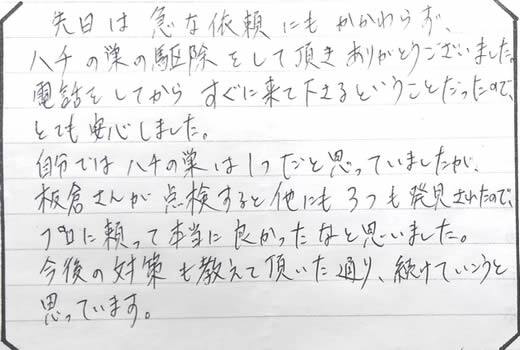 先日は急な依頼にもかかわらず、
ハチの巣の駆除をして頂きありがとうございました。
電話をしてからすぐに来て下さるということだったので、
とても安心しました。
自分ではハチの巣は1つだと思っていましたが、
板倉さんが点検すると他にも3つも発見されたので、
プロに頼って本当に良かったなと思いました。
今後の対策も教えて頂いた通り、続けていこうと
思っています。